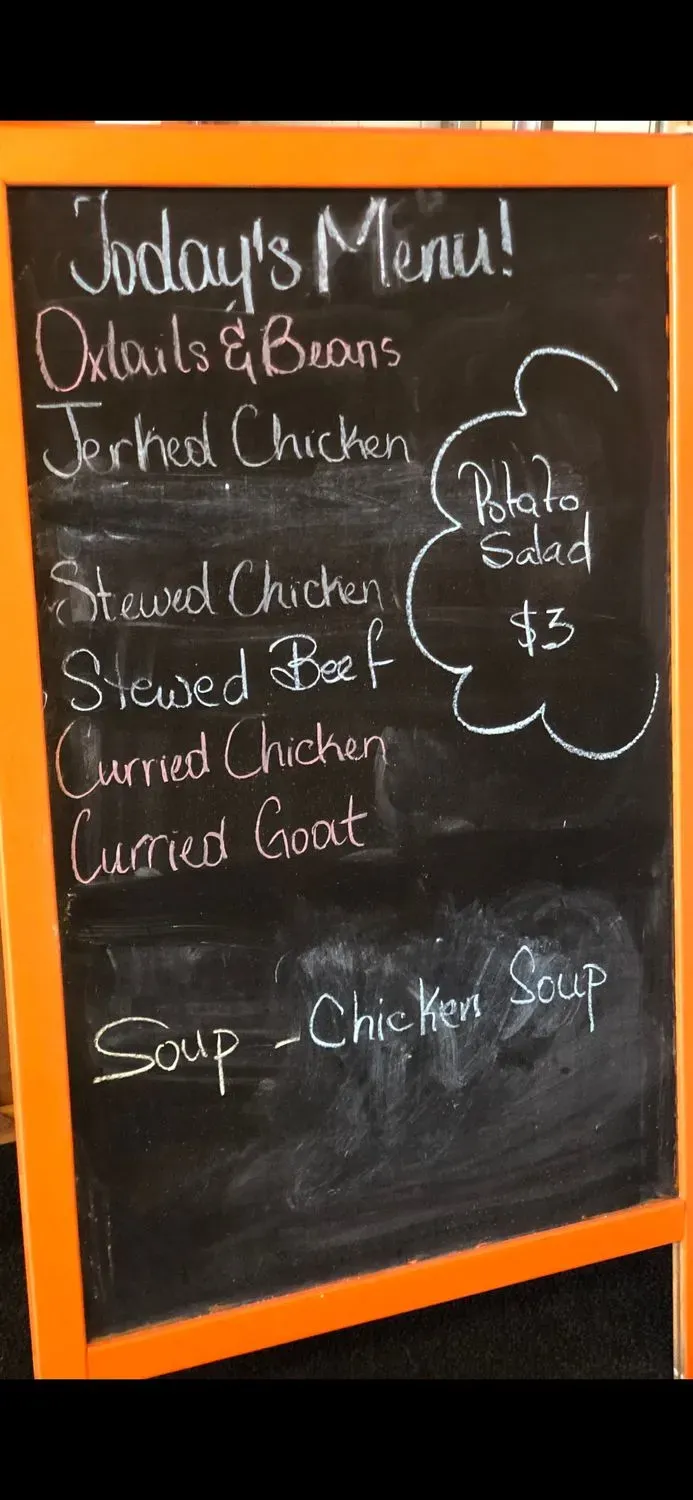 Today's Menu!
Oxtails & Beans
Jerked Chicken
Stewed Chicken
Stewed Beef
Curried Chicken
Curried Goat
Potato
Salad
$3
Soup - Chicken Soup